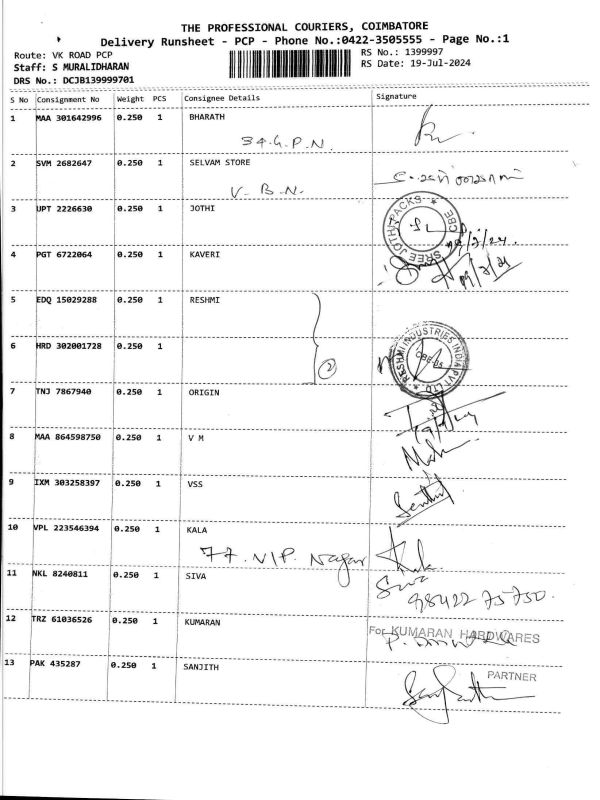 THE PROFESSIONAL COURIERS, COIMBATORE
Delivery Runsheet - PCP - Phone No.:0422-3505555 - Page No.:1
Route: VK ROAD PCP
Staff: S MURALIDHARAN
DRS No.: DCJB139999701
RS No.: 1399997
RS Date: 19-Jul-2024
S No Consignment No Weight PCS Consignee Details Signature
1 MAA 301642996 0.250 1 BHARATH
34.G.P.N.
2 SVM 2682647 0.250 1 SELVAM STORE
V. B.N.
3 UPT 2226630 0.250 1 JOTHI
SREE JOTHI PACKS CBE
4 PGT 6722064 0.250 1 KAVERI
5 EDQ 15029288 0.250 1 RESHMI
6 HRD 302001728 0.250 1
2
RESHMI INDUSTRIES INDIA PVT LTD
7 TNJ 7867940 0.250 1 ORIGIN
8 MAA 864598750 0.250 1 V M
9 IXM 303258397 0.250 1 VSS
10 VPL 223546394 0.250 1 KALA
77. VIP. Nagar
11 NKL 8240811 0.250 1 SIVA
Siva
98422 75750.
12 TRZ 61036526 0.250 1 KUMARAN
For KUMARAN HARDWARES
PARTNER
13 PAK 435287 0.250 1 SANJITH